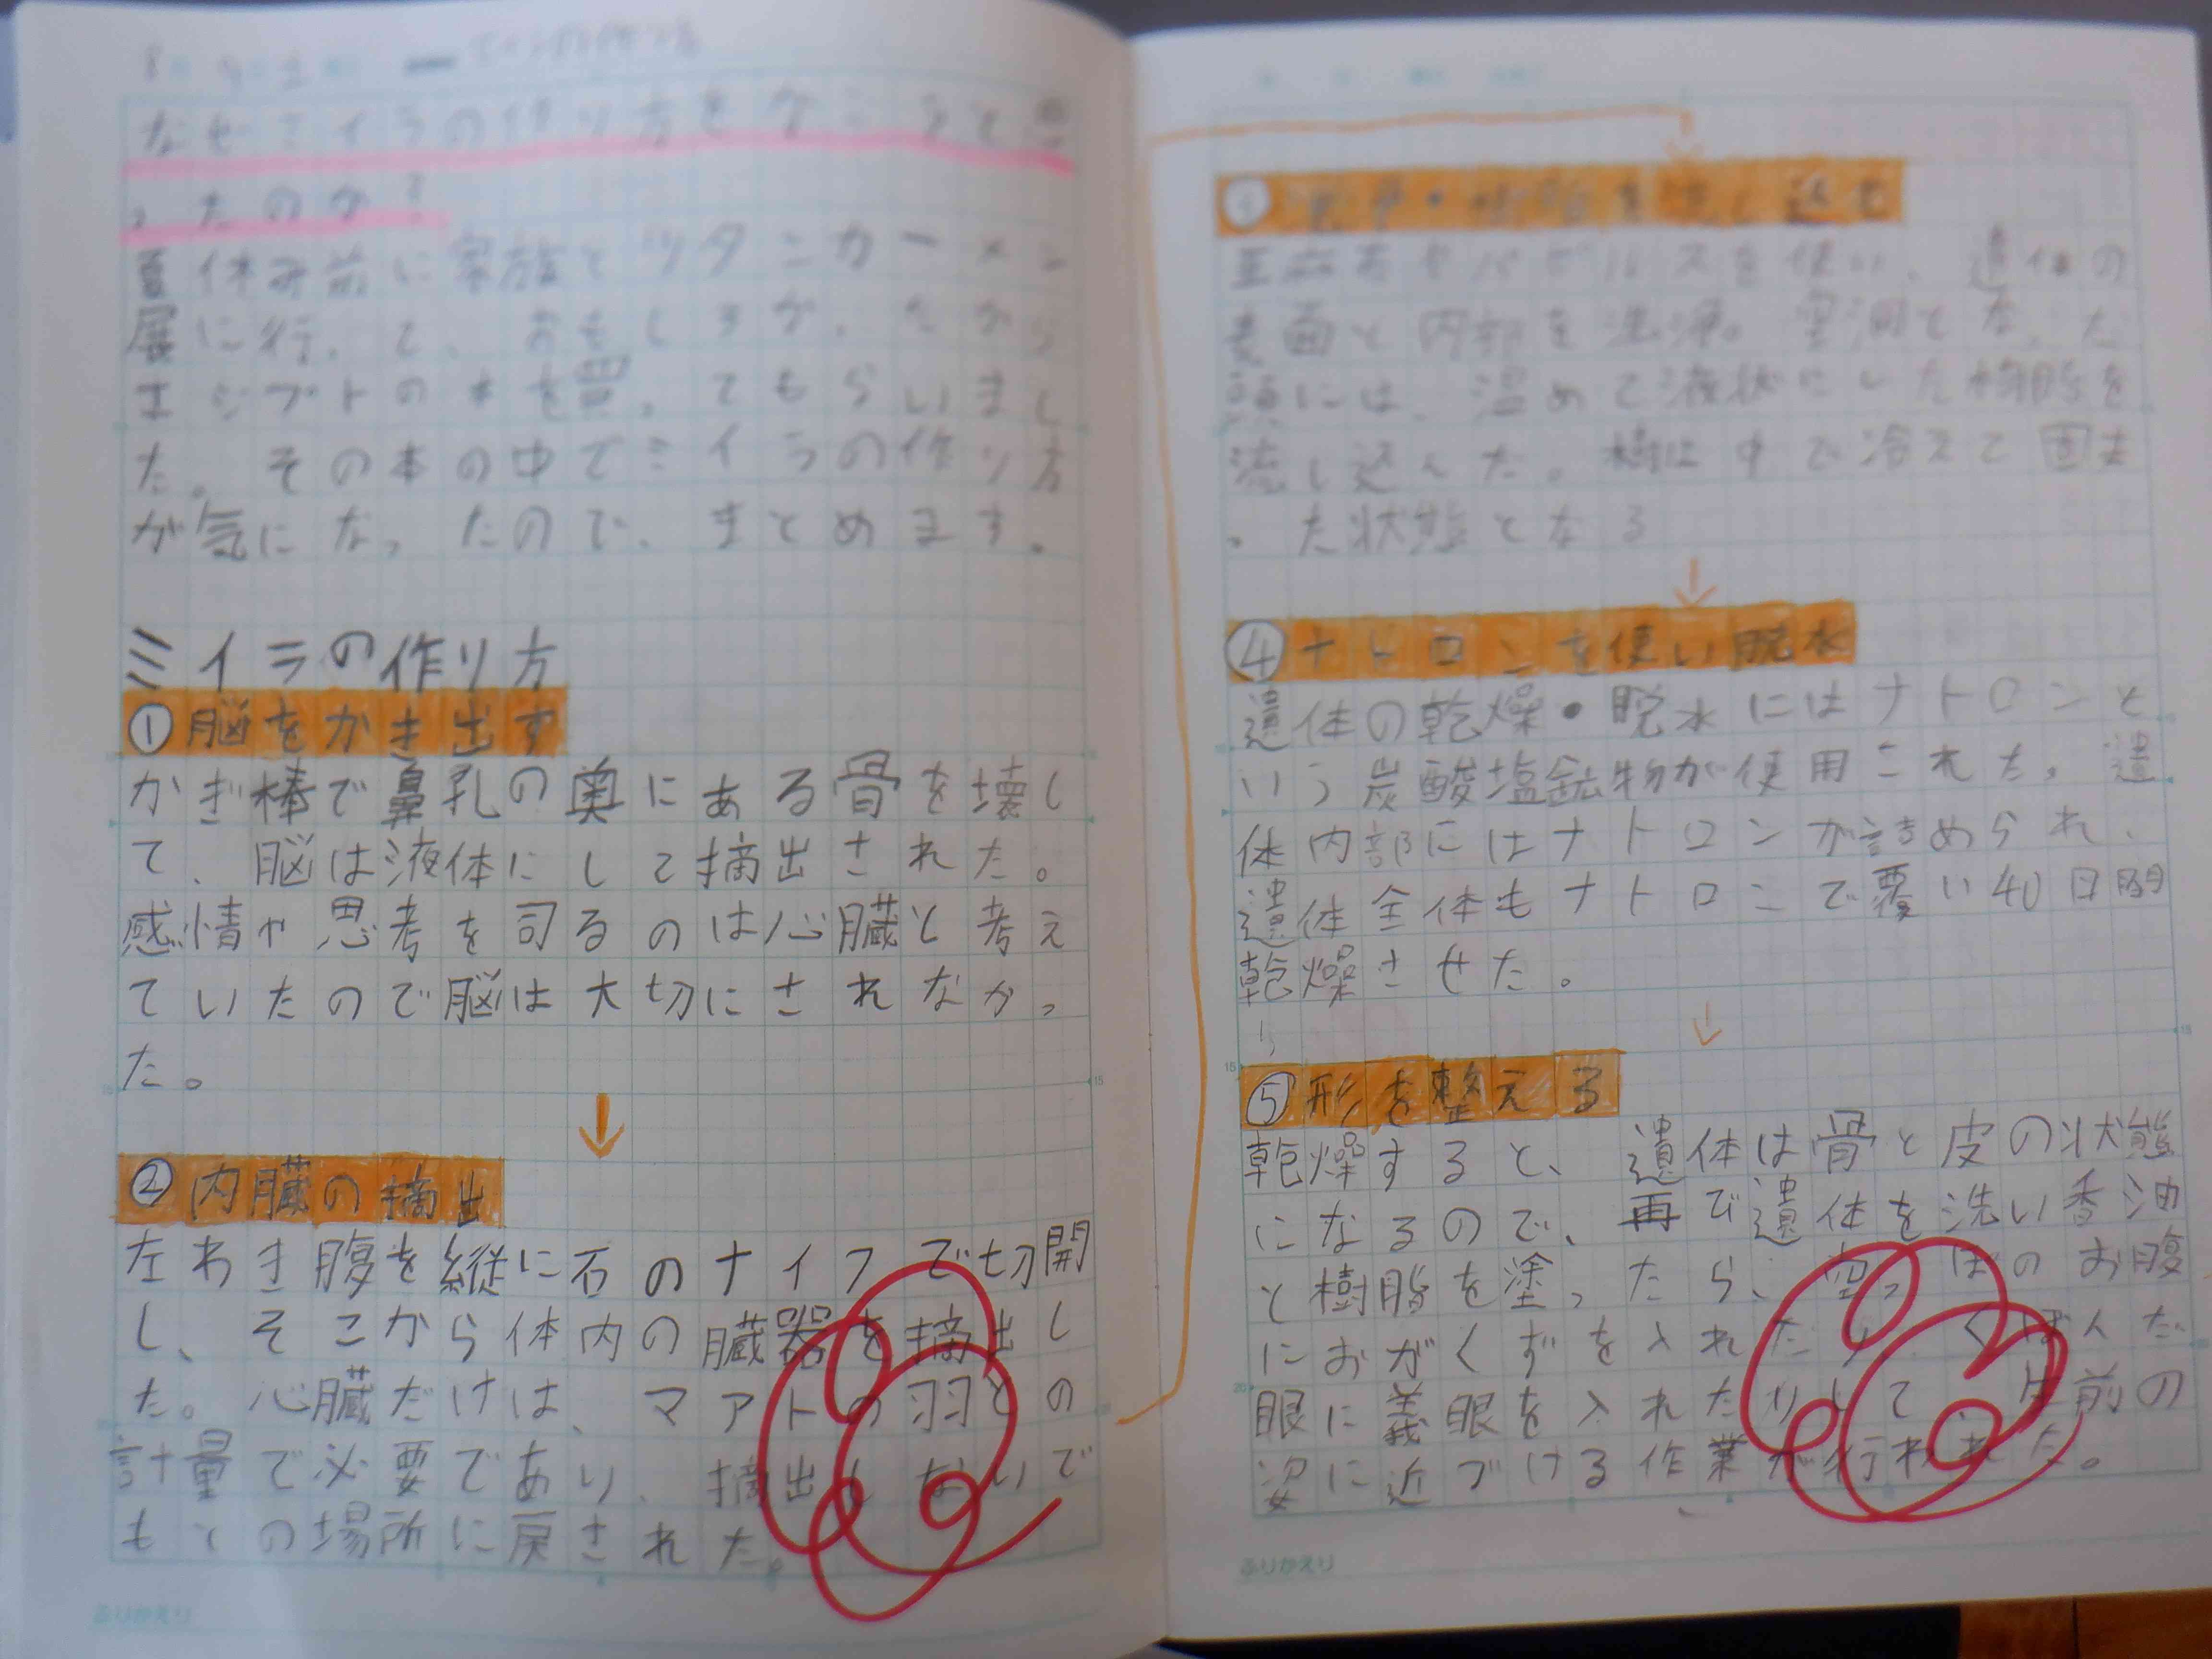 なぜミイラの作り方をかこうと思
ったのか?
夏休み前に家族とツタンカーメン
展に行って、おもしろかったから
エジプトの本を買ってもらいまし
た。その本の中でミイラの作り方
が気になったので、まとめます。
ミイラの作り方
①脳をかき出す
かぎ棒で鼻乳の奥にある骨を壊し
て、脳は液体にして摘出された。
感情や思考を司るのは心臓と考え
ていたので脳は大切にされなかっ
た。
↓
②内臓の摘出
左わき腹を縦に石のナイフで切開
し、そこから体内の臓器を摘出し
た。心臓だけは、マアトの羽との
計量で必要であり、摘出しないで
もとの場所に戻された。
ふりかえり
③洗浄・樹脂を流し込む
亜麻布やパピルスを使い、遺体の
表面と内部を洗浄。空洞となった
頭には、温めて液状にした樹脂を
流し込んだ。樹脂は中で冷えて固ま
った状態となる
↓
④ナトロンを使い脱水
遺体の乾燥・脱水にはナトロンと
いう炭酸塩鉱物が使用された。遺
体内部にはナトロンが詰められ、
遺体全体もナトロンで覆い40日間
乾燥させた。
↓
⑤形を整える
乾燥すると、遺体は骨と皮の状態
になるので、再で遺体を洗い香油
と樹脂を塗ったら、空っぽのお腹
におがくずを入れたり、くぼんだ
眼に義眼を入れたりして、生前の
姿に近づける作業が行われた。
ふりかえり